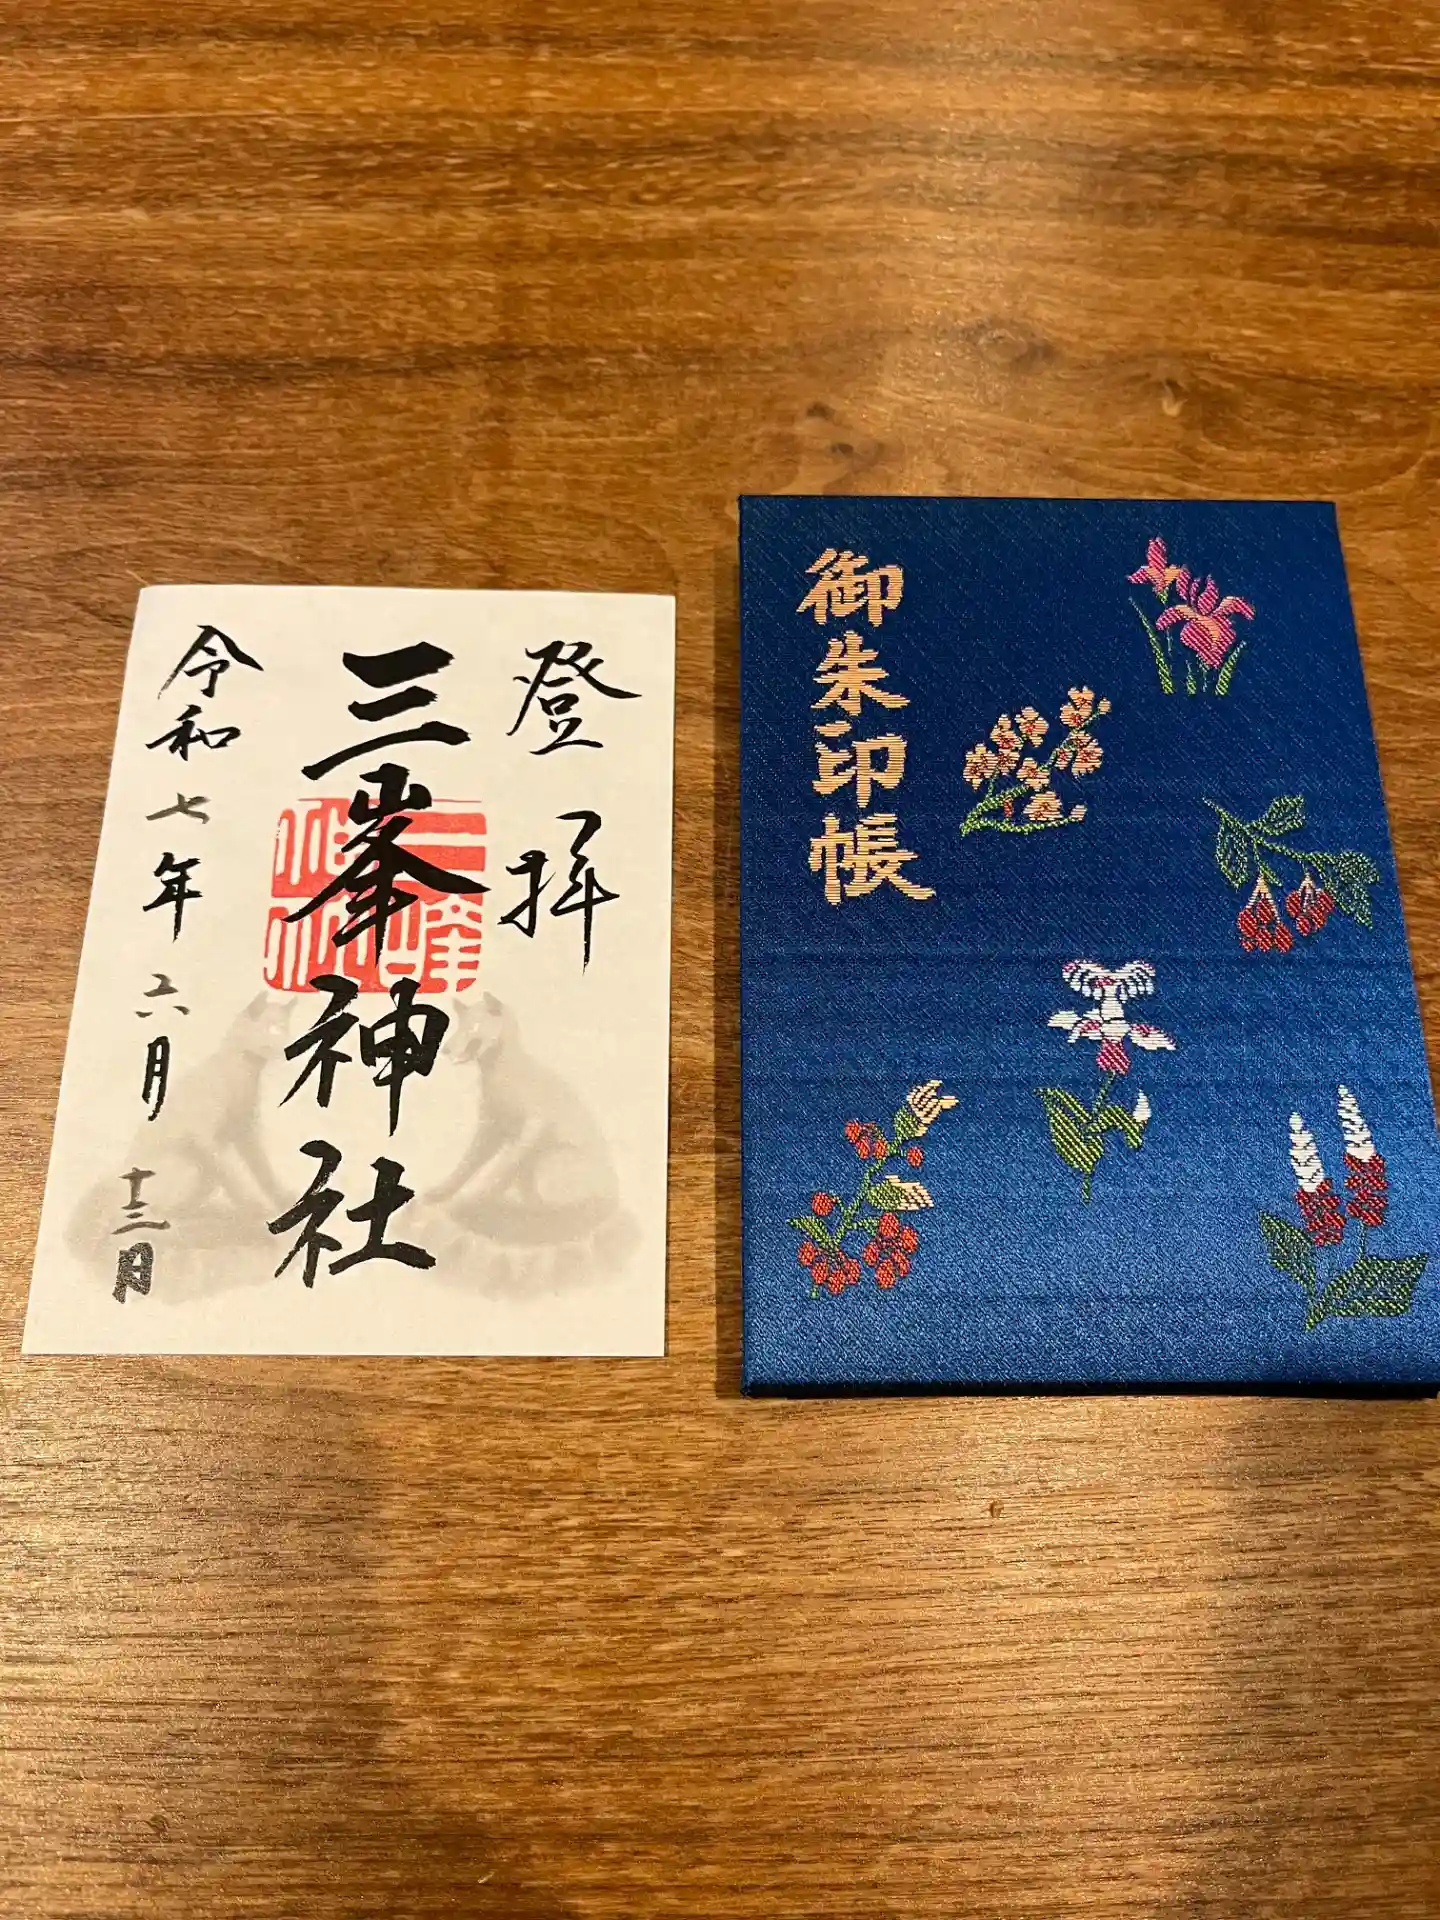 登拝
三峯神社
令和七年六月十三日
御朱印帳